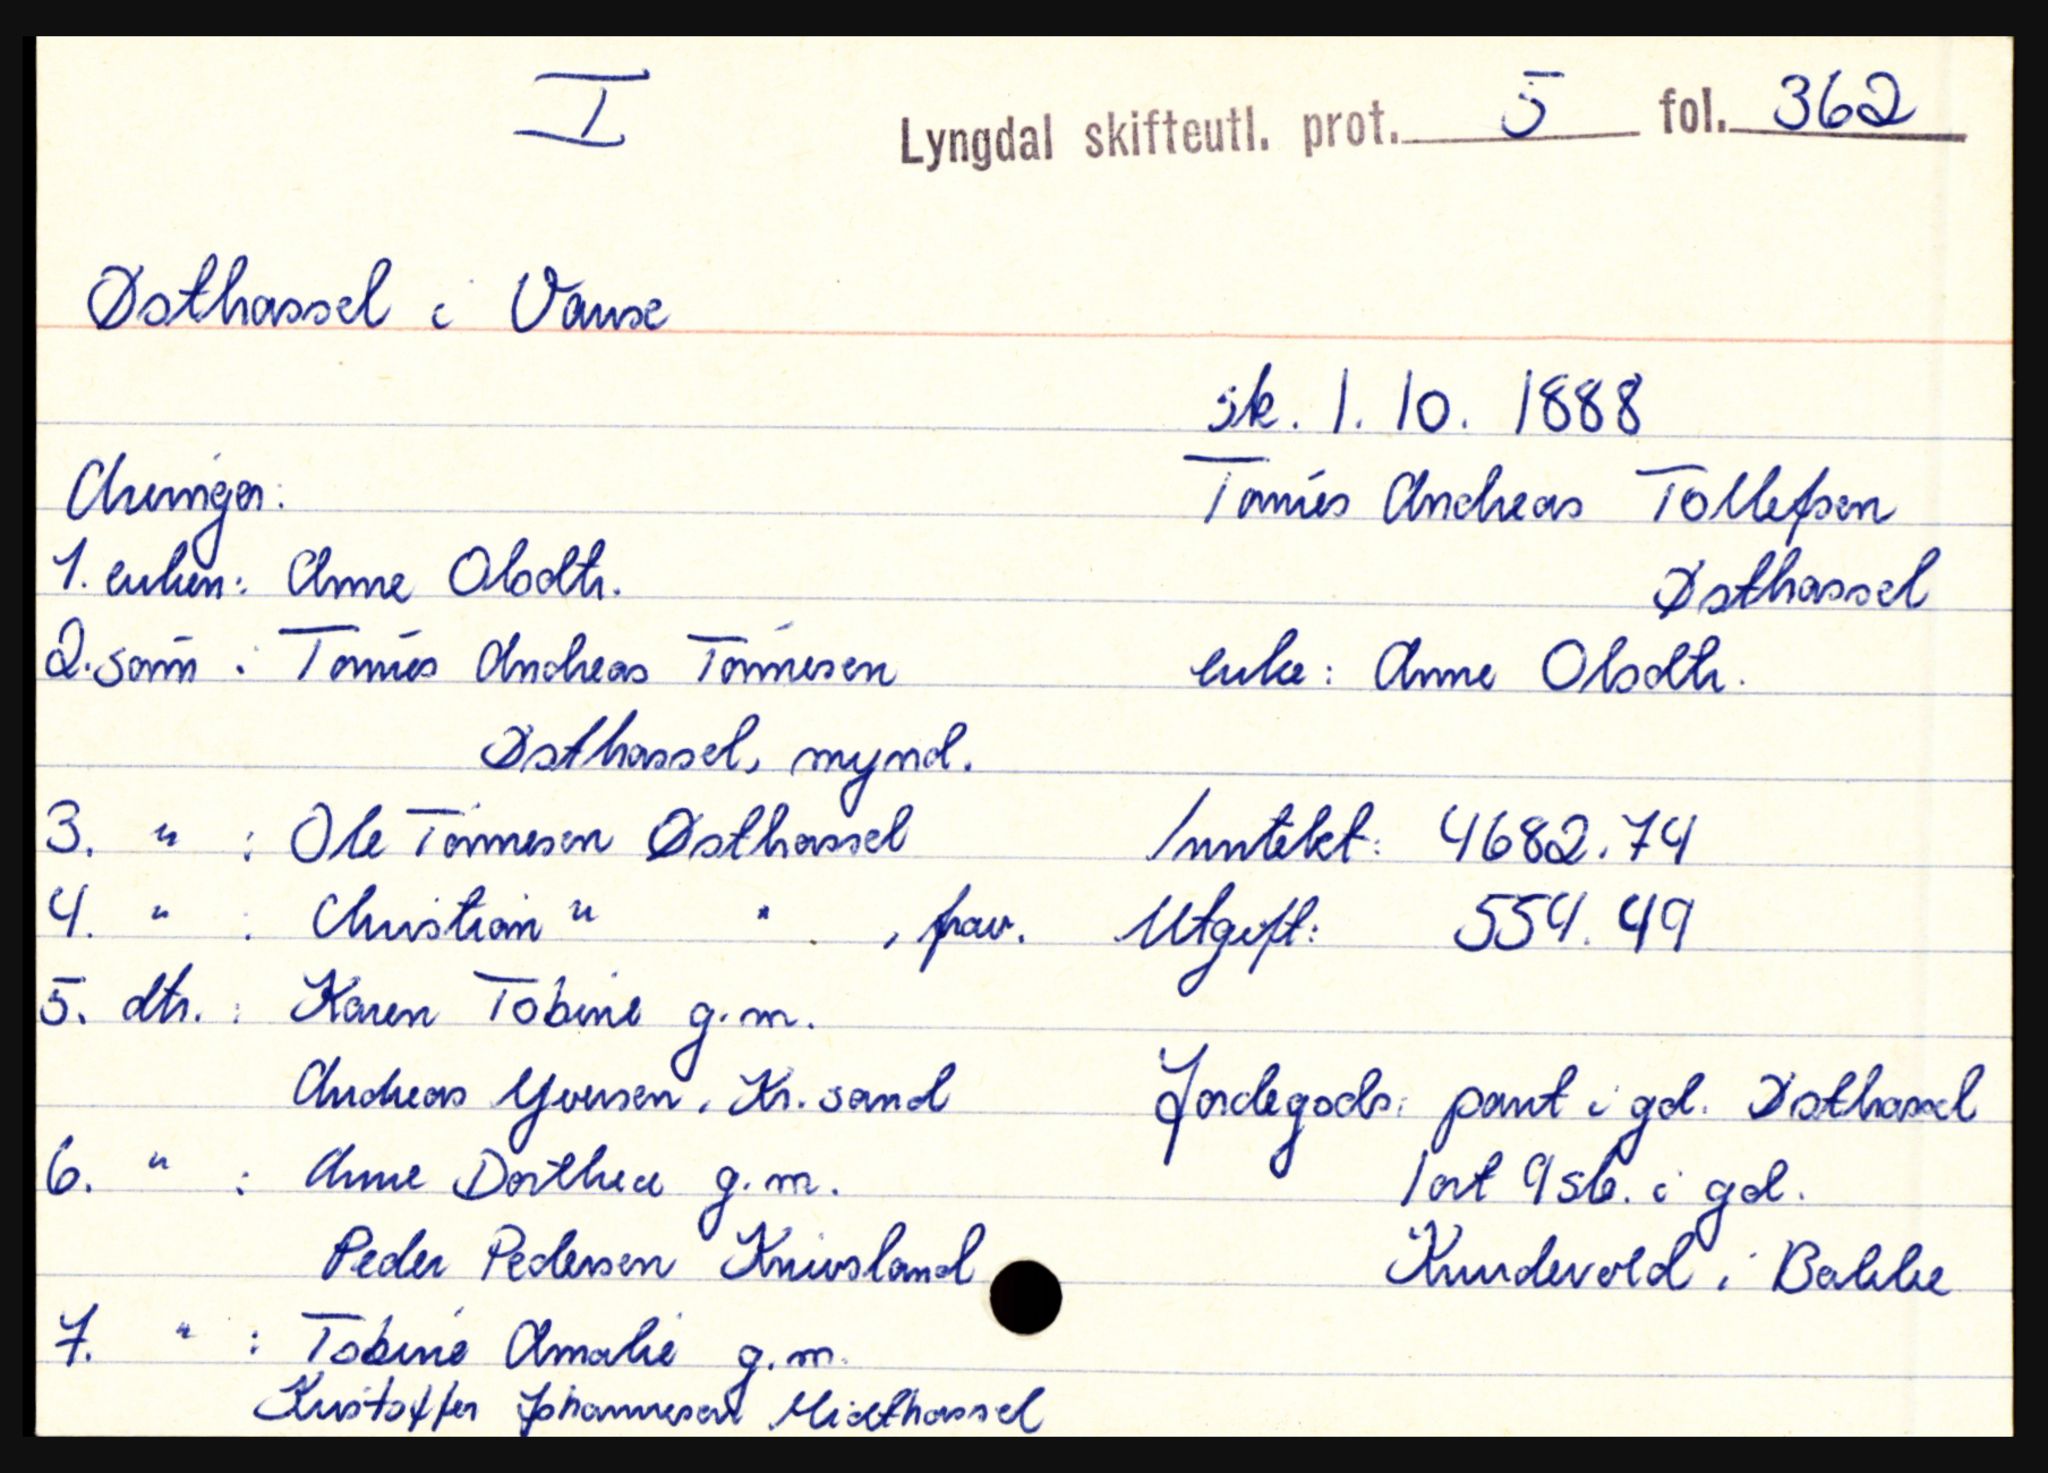 I
Lyngdal skifteutl. prot. 5 fol. 362
Østhassel i Vanse
sk. 1. 10. 1888
Tønnes Andreas Tollefsen
Østhassel
enke: Anne Olsdtr.
Inntekt: 4682.74
Utgift: 554.49
Jordegods: pant i gd. Østhassel
1 ort 9 sk. i gd.
Knudevold i Bakke
Arvinger:
1. enken: Anne Olsdtr.
2. sønn : Tønnes Andreas Tønnesen
Østhassel, mynd.
3. " : Ole Tønnesen Østhassel
4. " : Christian " " , frav.
5. dtr. : Karen Tobine g.m.
Andreas Yversen, Kr.sand
6. " : Anne Dorthea g.m.
Peder Pedersen Knivsland
7. " : Tobine Amalie g.m.
Kristoffer Johannesen Midthassel